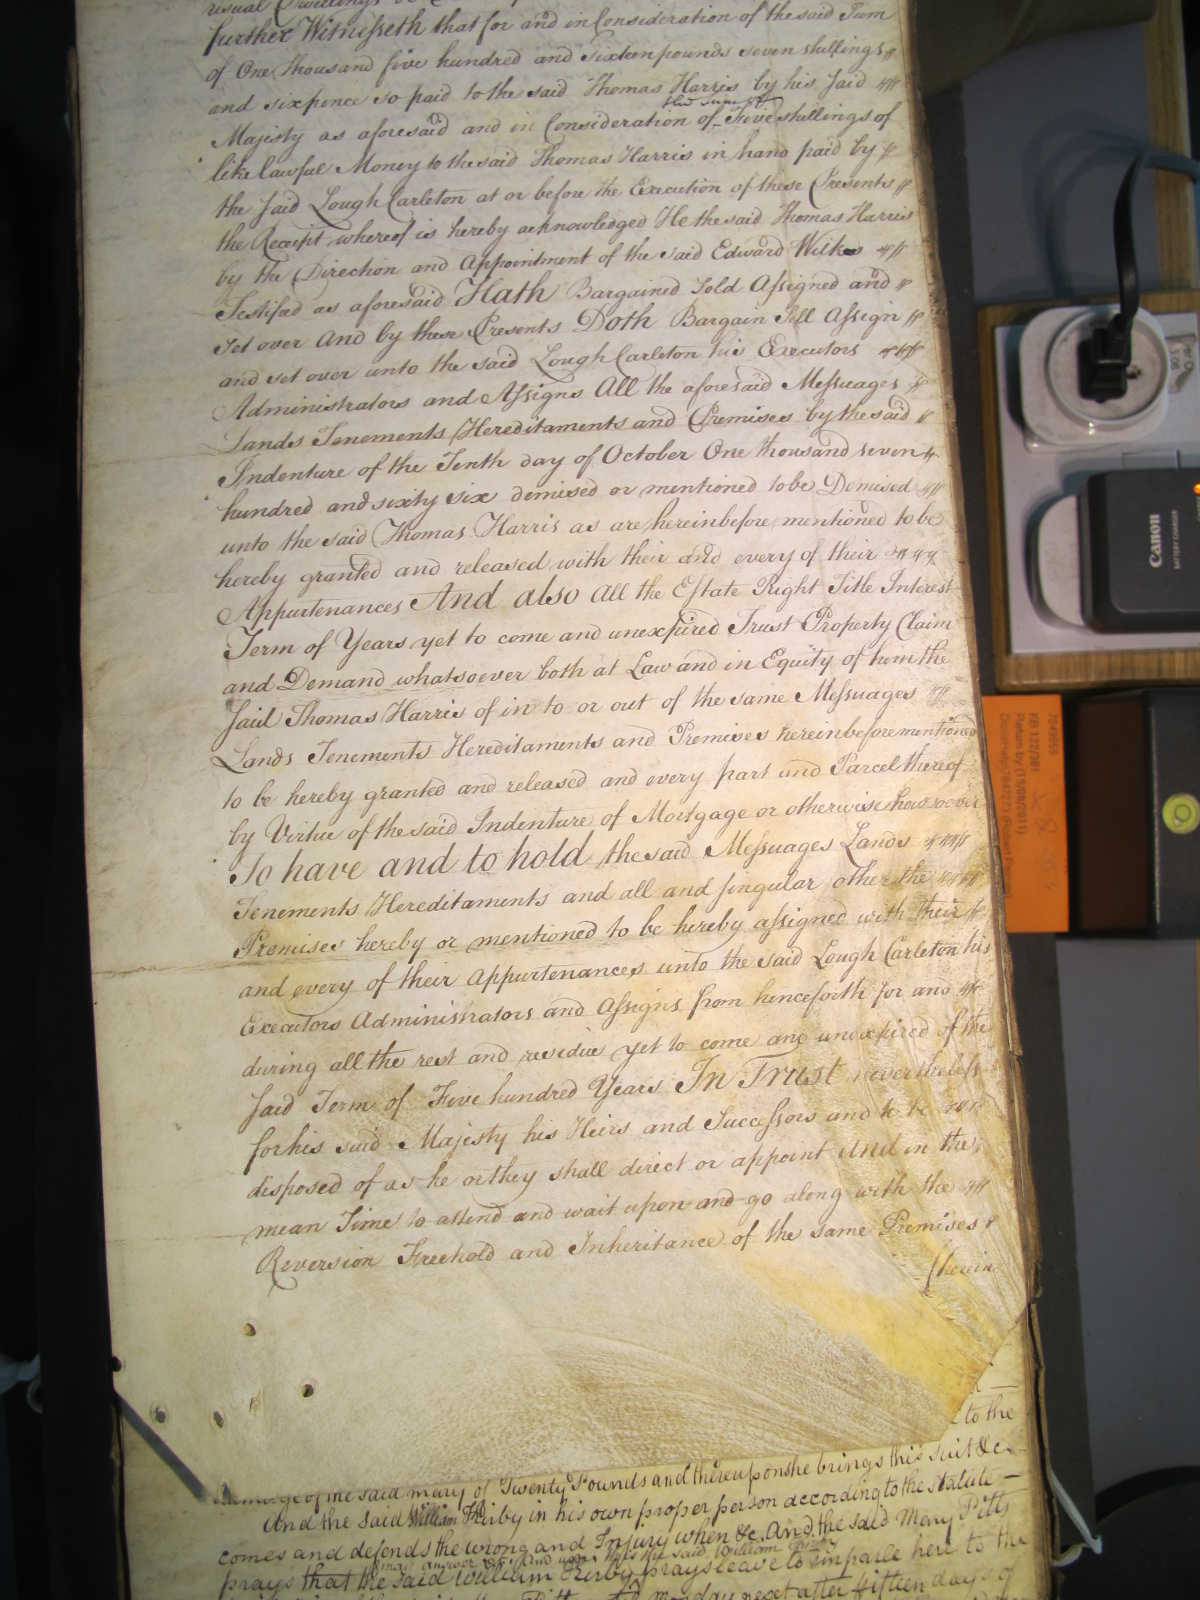 usual Dwellings or
further Witnesseth that for and in Consideration of the said Sum
of One thousand five hundred and sixteen pounds seven shillings
and sixpence so paid to the said Thomas Harris by his said
the sum of
Majesty as aforesaid and in Consideration of Five shillings of
like lawful Money to the said Thomas Harris in hand paid by
the said Lough Carleton at or before the Execution of these Presents
the Receipt whereof is hereby acknowledged He the said Thomas Harris
by the Direction and Appointment of the said Edward Wilkes
Testified as aforesaid Hath Bargained Sold Assigned and
set over And by these Presents Doth Bargain Sell Assign
and set over unto the said Lough Carleton his Executors
Administrators and Assigns All the aforesaid Messuages
Lands Tenements Hereditaments and Premises by the said
Indenture of the Tenth day of October One thousand seven
hundred and sixty six demised or mentioned to be Demised
unto the said Thomas Harris as are hereinbefore mentioned to be
hereby granted and released with their and every of their
Appurtenances And also All the Estate Right Title Interest
Term of Years yet to come and unexpired Trust Property Claim
and Demand whatsoever both at Law and in Equity of him the
said Thomas Harris of in to or out of the same Messuages
Lands Tenements Hereditaments and Premises hereinbefore mentioned
to be hereby granted and released and every part and Parcel thereof
by Virtue of the said Indenture of Mortgage or otherwise howsoever
To have and to hold the said Messuages Lands
Tenements Hereditaments and all and singular other the
Premises hereby or mentioned to be hereby assigned with their
and every of their Appurtenances unto the said Lough Carleton his
Executors Administrators and Assigns from henceforth for and
during all the rest and residue yet to come and unexpired of the
said Term of Five hundred Years In Trust nevertheless
for his said Majesty his Heirs and Successors and to be
disposed of as he or they shall direct or appoint And in the
mean Time to attend and wait upon and go along with the
Reversion Freehold and Inheritance of the same Premises
herein
to the
damage of the said Mary of Twenty Pounds and thereupon she brings this suit &c.
And the said William Kirby in his own proper person according to the statute
comes and defends the wrong and Injury when &c. And the said Mary Pitts
prays that the said William Kirby prays leave to imparle here to the
Monday next after fifteen days of
Canon
BATTERY CHARGER
7049959
KB 122/361
Return by (10/09/2011)